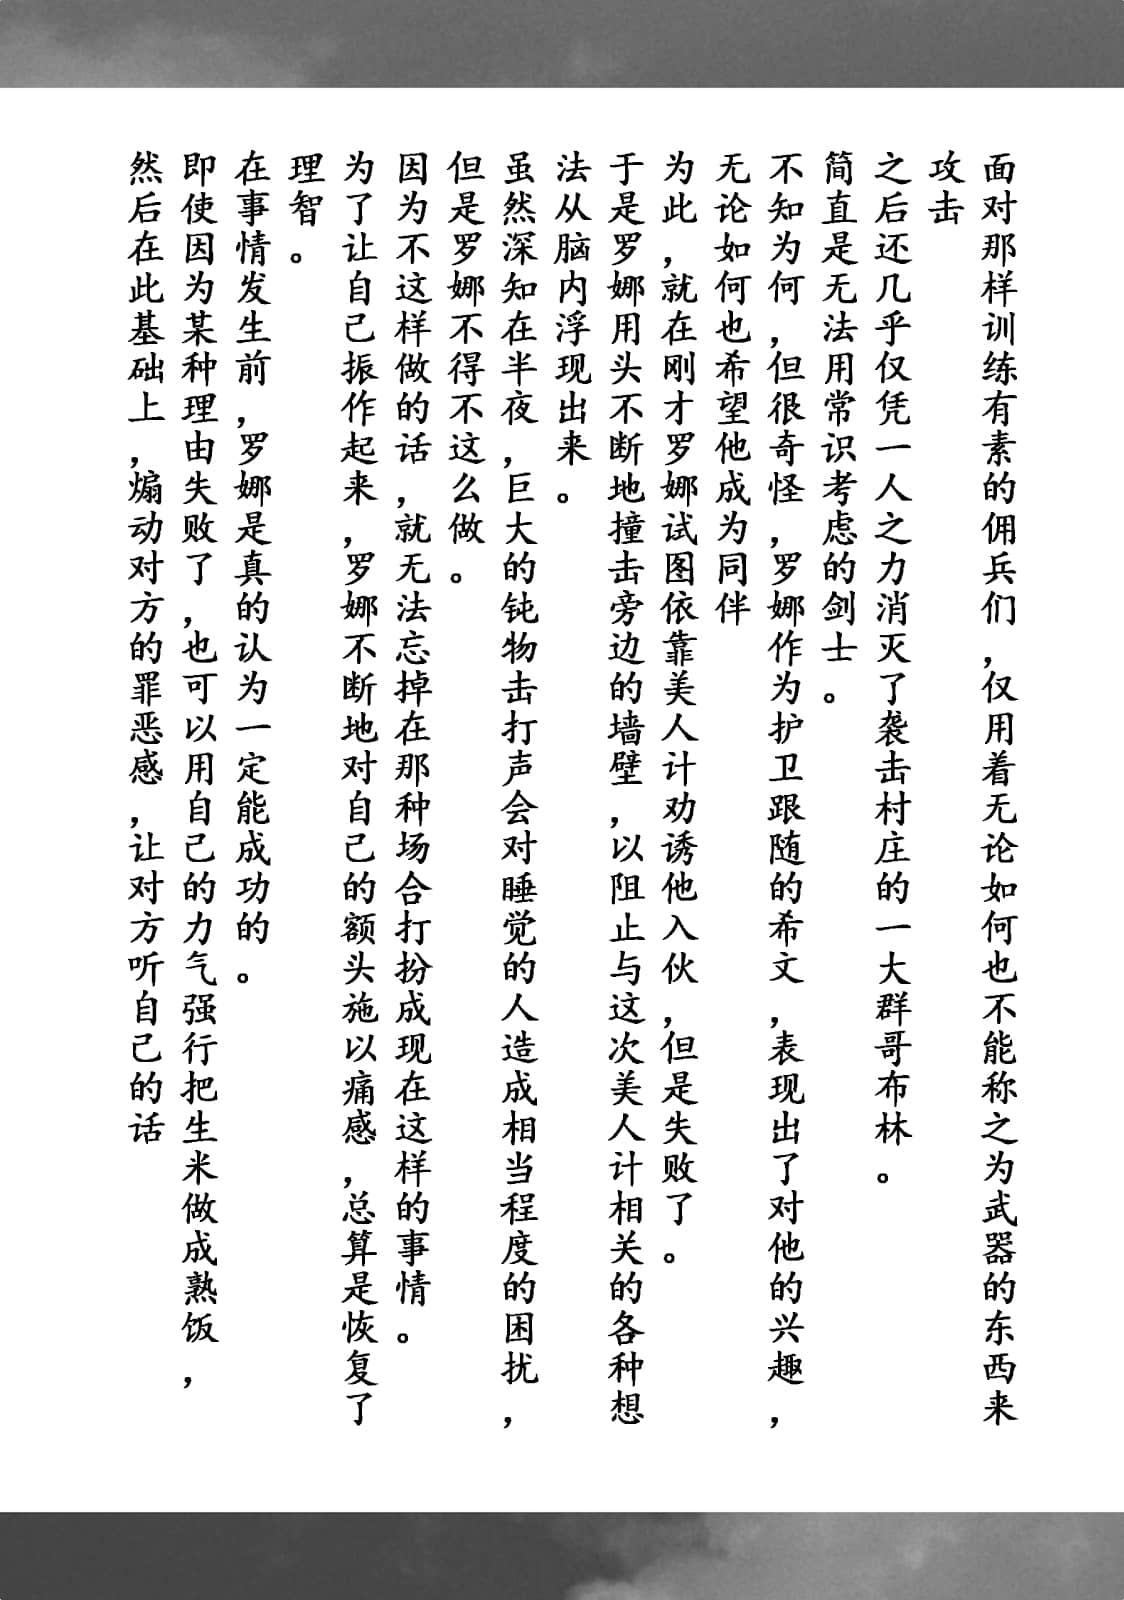 面对那样训练有素的佣兵们，仅用着无论如何也不能称之为武器的东西来
攻击
之后还几乎仅凭一人之力消灭了袭击村庄的一大群哥布林。
简直是无法用常识考虑的剑士。
不知为何，但很奇怪，罗娜作为护卫跟随的希文，表现出了对他的兴趣，
无论如何也希望他成为同伴
为此，就在刚才罗娜试图依靠美人计劝诱他入伙，但是失败了。
于是罗娜用头不断地撞击旁边的墙壁，以阻止与这次美人计相关的各种想
法从脑内浮现出来。
虽然深知在半夜，巨大的钝物击打声会对睡觉的人造成相当程度的困扰，
但是罗娜不得不这么做。
因为不这样做的话，就无法忘掉在那种场合打扮成现在这样的事情。
为了让自己振作起来，罗娜不断地对自己的额头施以痛感，总算是恢复了
理智。
在事情发生前，罗娜是真的认为一定能成功的。
即使因为某种理由失败了，也可以用自己的力气强行把生米做成熟饭，
然后在此基础上，煽动对方的罪恶感，让对方听自己的话